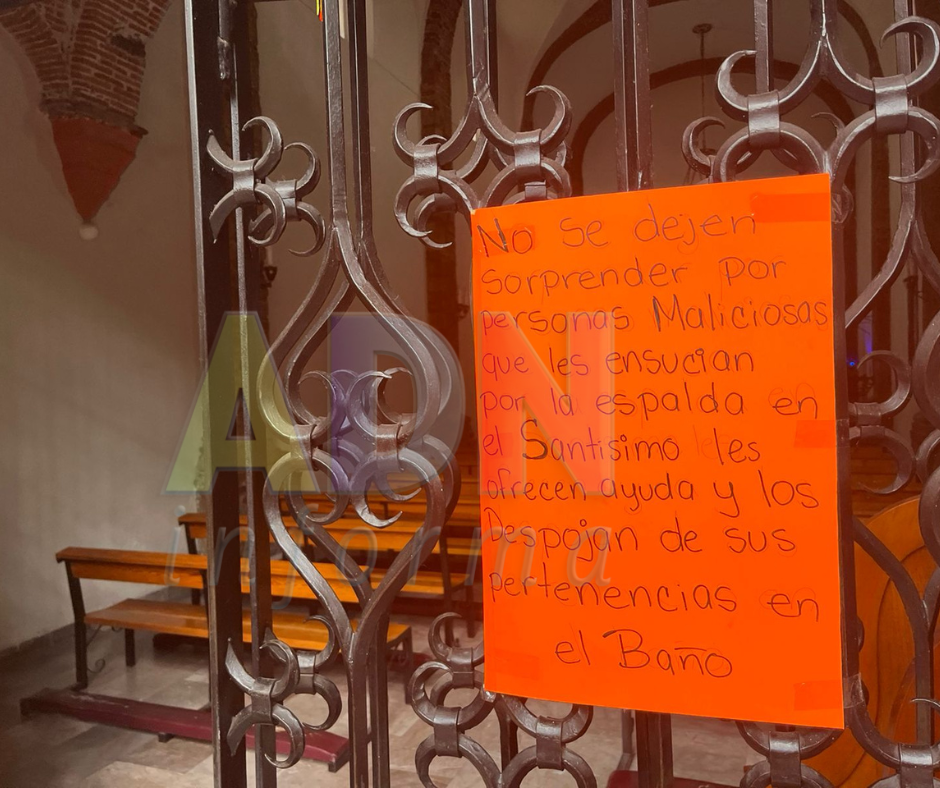 No se dejen
sorprender por
personas Maliciosas
que les ensucian
por la espalda en
el Santisimo les
ofrecen ayuda y los
Despojan de sus
pertenencias en
el Baño
ADN
informa